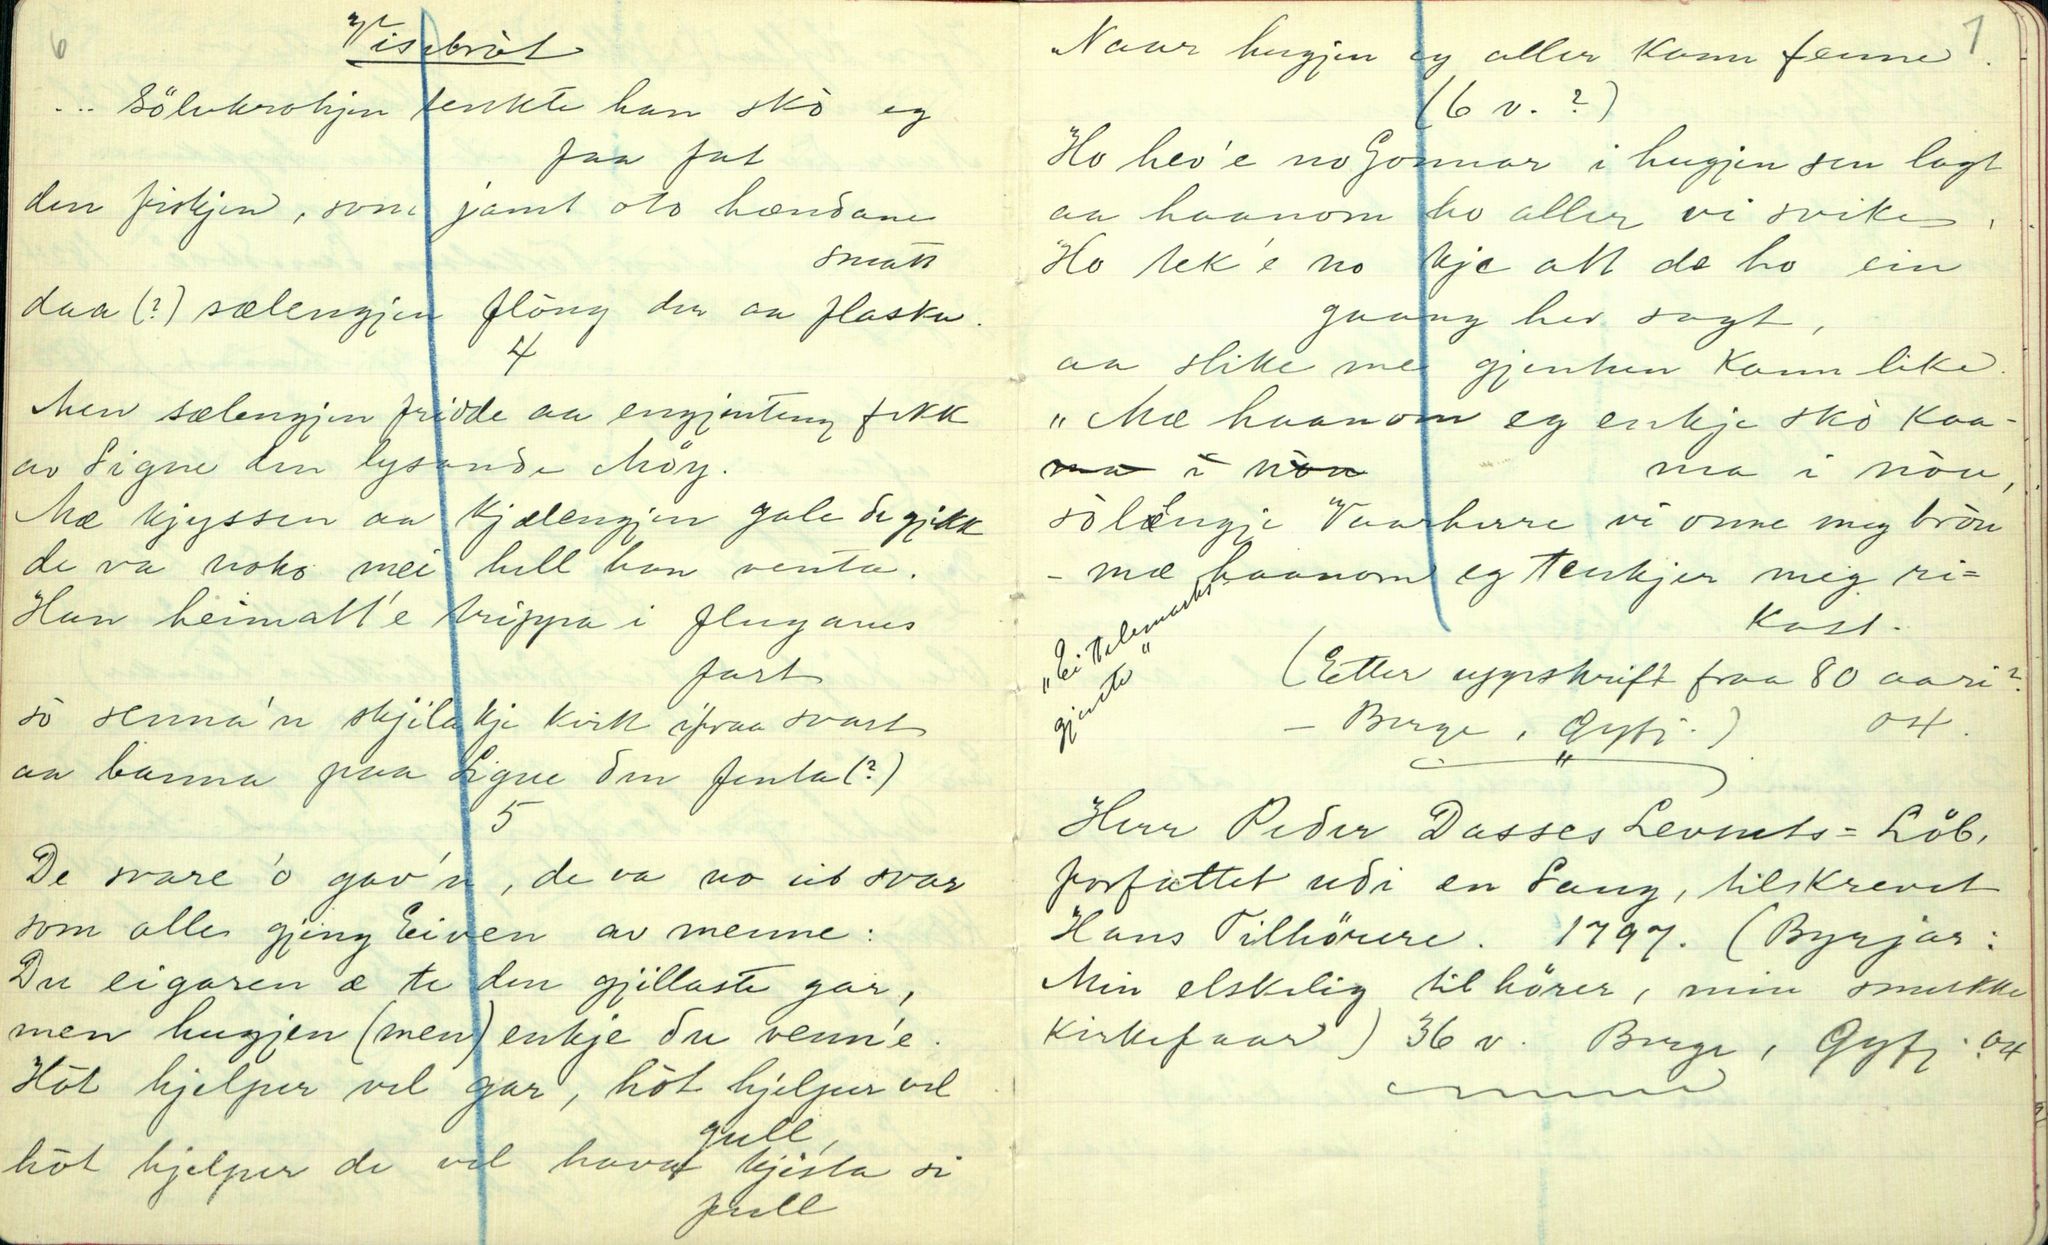 6
Visebròt
... Sölvkrokjen tenkte han skò eg
faa fat
den fiskjen, som jamt oto hændane
smatt
daa (?) sælengjen flöug der aa flaska.
4
Men sælengjen fridde aa engjenteng fekk
av Signe den lysande Möy.
Mæ kjyssen aa kjælengjen gale de gjekk
de va noko mei hell han venta.
Han heimatt'e trippa i fluganes
fart
sò senna'n skjila kje kvitt ifraa svart
aa banna paa Signe den fenta (?)
5
De svare 'o gav'n, de va no eit svar
som alle gjeng Eiven av menne:
Du eigaren æ te den gjillaste gar,
men hugjen (men) enkje du venn'e.
Hòt hjelper vel gar, hòt hjelper vel
gull,
hòt hjelper de vel hava kjista si
full
7
Naar hugjen eg aller kann fenne.
(6 v. ?)
Ho hev'e no Gonnar i hugjen sen lagt
aa haanom ho aller vi svike,
Ho tek'e no kje att de ho ein
gaang hev sagt,
aa slike me gjenten kann like.
"Mæ haanom eg enkje skò kaa-
ma i nòu
ma i nòu,
sòlængje Vaarherre vi onne meg bròu
- mæ haanom eg tenkjer meg ri=
kast.
"Ei telemarks-
gjente"
(Etter uppskrift fraa 80 aari?
- Berge, Gyfj.) ox.
"
Herr Peder Dasses Levnets= Löb,
forfattet udi en Sang, tilskrevet
Hans Tilhörere. 1797. (Byrjar:
Min elskelig tilhörer, min smukke
kirkefaar) 36 v. Berge, Gyfj. ox